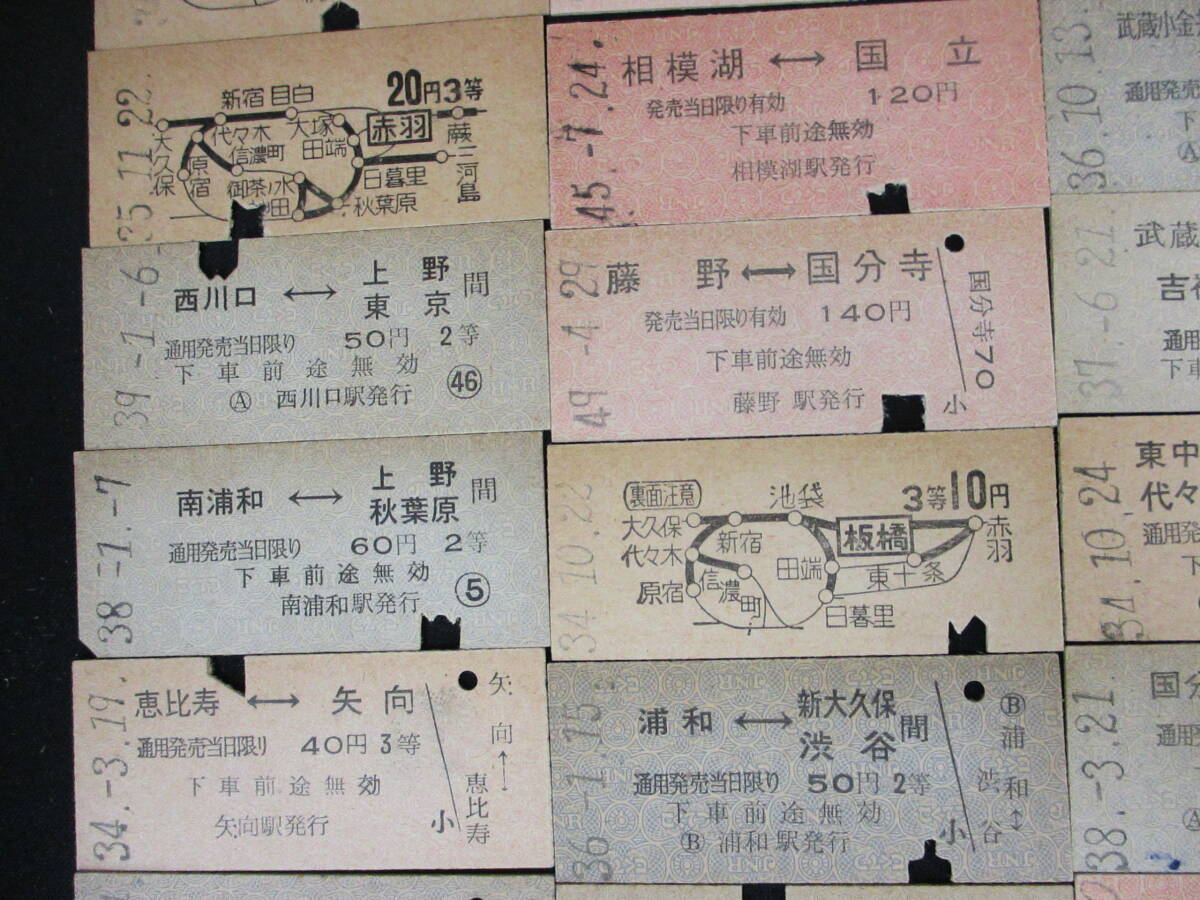 35.11.22.
20円3等
新宿 目白
代々木 大塚 赤羽 蕨
大久保 原宿 信濃町 田端 三河島
御茶ノ水 日暮里
秋葉原
39.-1.-6.
西川口 ↔ 上野 東京 間
通用発売当日限り 50円 2等
下車前途無効
Ⓐ 西川口駅発行 ㊻
38.-1.-7
南浦和 ↔ 上野 秋葉原 間
通用発売当日限り 60円 2等
下車前途無効
南浦和駅発行 ⑤
34.-3.19.
恵比寿 ↔ 矢向
通用発売当日限り 40円 3等
下車前途無効
矢向駅発行
小
矢向↔恵比寿
45.-7.24.
相模湖 ↔ 国立
発売当日限り有効 120円
下車前途無効
相模湖駅発行
49.-4.29
藤野 ↔ 国分寺
発売当日限り有効 140円
下車前途無効
藤野駅発行
小
国分寺70
34.10.22
裏面注意 池袋 3等10円
大久保 新宿 板橋 赤羽
代々木 田端 東十条
原宿 信濃町 日暮里
36.-1.15.
浦和 ↔ 新大久保 渋谷 間
通用発売当日限り 50円 2等
下車前途無効
Ⓑ 浦和駅発行
小
Ⓑ 浦和↔渋谷
36.10.13.
武蔵小金
通用発売
下
Ⓐ
37.-6.21.
武蔵
吉
通用
下車
34.10.24
東中
代々
通用発
下
38.-3.21.
国分
通用
Ⓐ